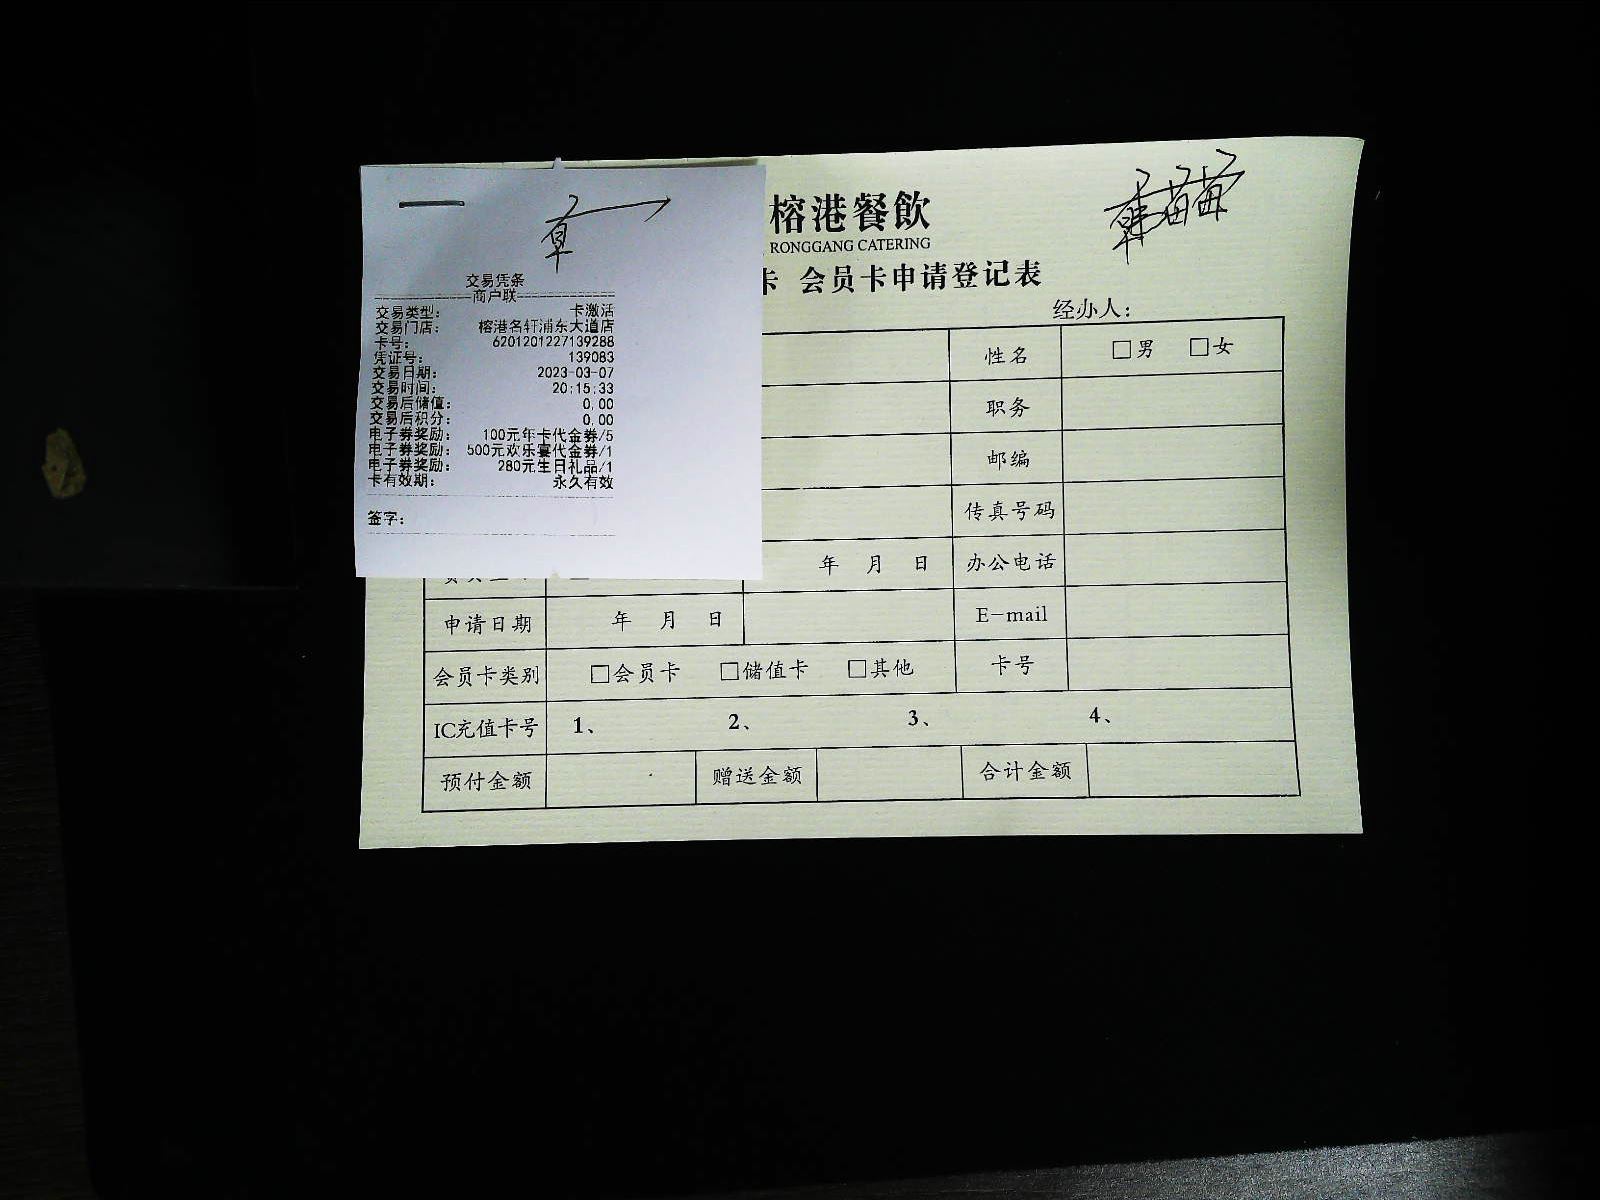 交易凭条
商户联
交易类型: 卡激活
交易门店: 榕港名轩浦东大道店
卡号: 6201201227139288
凭证号: 139083
交易日期: 2023-03-07
交易时间: 20:15:33
交易后储值: 0.00
交易后积分: 0.00
电子券奖励: 100元年卡代金券/5
电子券奖励: 500元欢乐宴代金券/1
电子券奖励: 280元生日礼品/1
卡有效期: 永久有效
签字:
榕港餐飲
RONGGANG CATERING
卡 会员卡申请登记表
韩苗苗
经办人:
性名 □男 □女
职务
邮编
传真号码
年 月 日 办公电话
申请日期 年 月 日 E-mail
会员卡类别 □会员卡 □储值卡 □其他 卡号
IC充值卡号 1、 2、 3、 4、
预付金额 赠送金额 合计金额